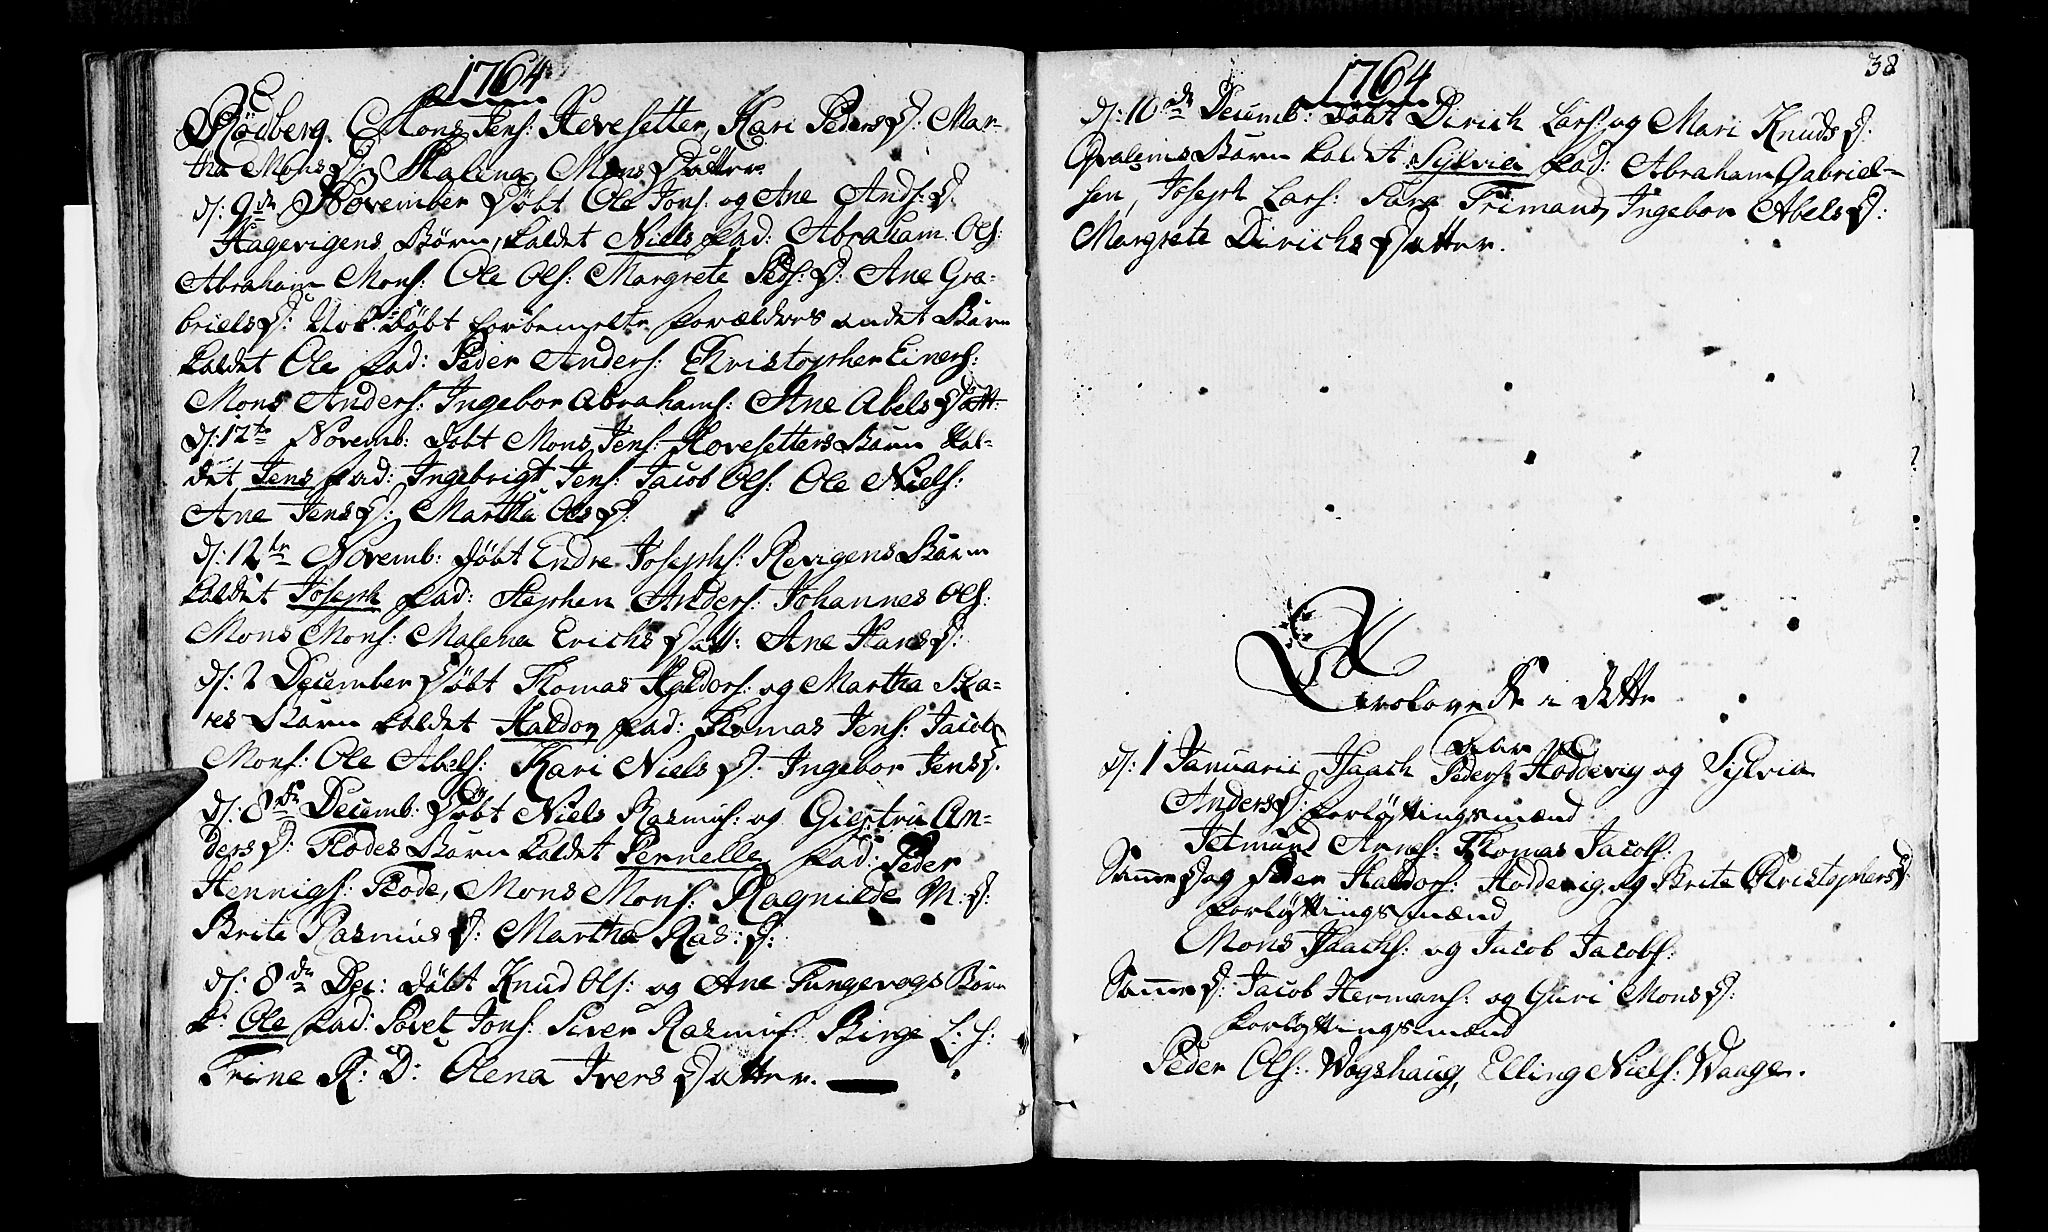 1764
Rödberg. Mons Jens: Hovesetter, Kari PedersD: Mar-
tha MonsD: Malena MonsDatter.
d: 9de November Döbt Ole Jons: og Ane Ands: D:
Hagevigens Börn, kaldet Niels fad: Abraham Ols:
Abraham Mons: Ole Ols: Margrete Peds: D: Ane Ga-
brielsD: Nok Döbt forbemelte forældres andet Barn
kaldet Ole fad: Peder Anders: Christopher Einers:
Mons Anders: Ingebor Abrahams: Ane Abels Datt:
d: 12te Novemb: Döbt Mons Jens: Hovesetters Barn kal-
det Jens fad: Ingebrigt Jens: Jacob Ols: Ole Niels:
Ane JensD: Martha OlsD:
d: 12te Novemb: Döbt Endre Josephs: Revigens Barn
kaldet Joseph fad: Stephen Anders: Johannes Ols:
Mons Mons: Malena Erichs Datt: Ane HansD:
d: 2 December Döbt Thomas Haldors: og Martha Ska-
res Barn kaldet Haldor fad: Thomas Jens: Jacob
Mons: Ole Abels: Kari NielsD: Ingebor JensD.
d: 8de Decemb: Döbt Niels Rasmus: og Giertru An-
dersD: Flodes Barn kaldet Pernelle fad: Peder
Hennigs: Flode, Mons Mons: Ragnilde M: D:
Brite RasmusD: Martha Ras: D:
d: 8de Dec: Döbt Knud Ols: og Ane Tungevogs Barn
k: Ole fad: Sovel Jons: Siver Rasmus: Birge L: S:
Trine R: D: Olena Ivers Datter.
1764
38
d: 16de Decemb: Döbt Dirich Lars: og Mari KnudsD:
Qvalems Barn kaldet Sylvia fad: Abraham Gabriel-
sen, Joseph Lars: Sara Friman, Ingebor AbelsD:
Margrete Dirichs Datter.
Trolovede i dette
Aar
d: 1 Januarii Isaach Peders: Hoddevig og Sylvia
AndersD: forlöftningsmænd
Jetmund Arnes: Thomas Jacobs:
Samme Dag Peder Haldors: Hoddevig og Brite ChristophersD:
forlöftningsmænd
Mons Isaachs: og Jacob Jacobs:
Samme D: Jacob Hermans: og Guri MonsD:
forlöftningsmænd
Peder Ols: Wogshaug, Elling Niels: Waage.